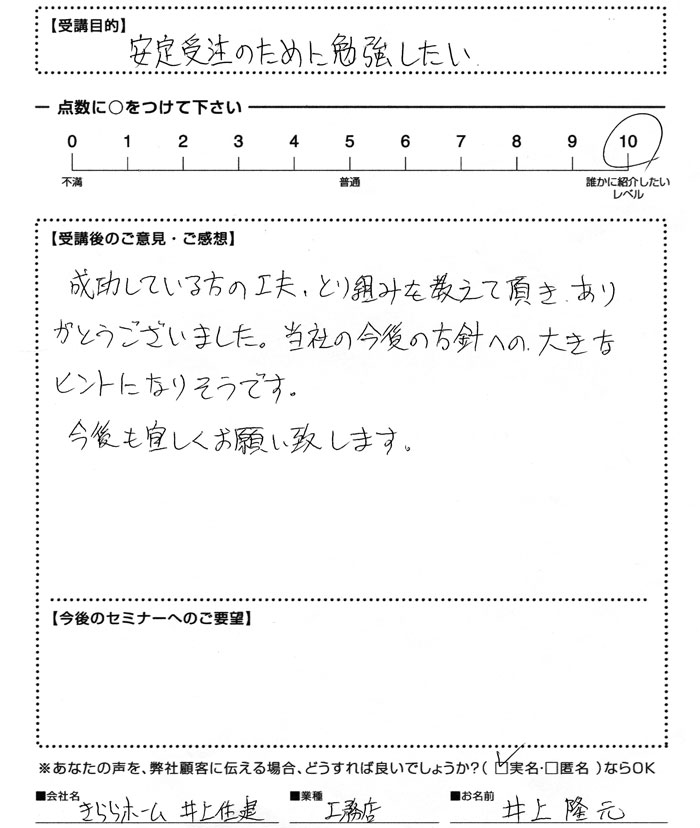 【受講目的】
安定受注のために勉強したい
点数に○をつけて下さい
0 1 2 3 4 5 6 7 8 9 10
不満 普通 誰かに紹介したい
レベル
【受講後のご意見・ご感想】
成功している方の工夫、とり組みを教えて頂き、あり
がとうございました。当社の今後の方針への、大きな
ヒントになりそうです。
今後も宜しくお願い致します。
【今後のセミナーへのご要望】
※あなたの声を、弊社顧客に伝える場合、どうすれば良いでしょうか?(☑実名・□匿名)ならOK
■会社名 きららホーム 井上住建 ■業種 工務店 ■お名前 井上 隆元